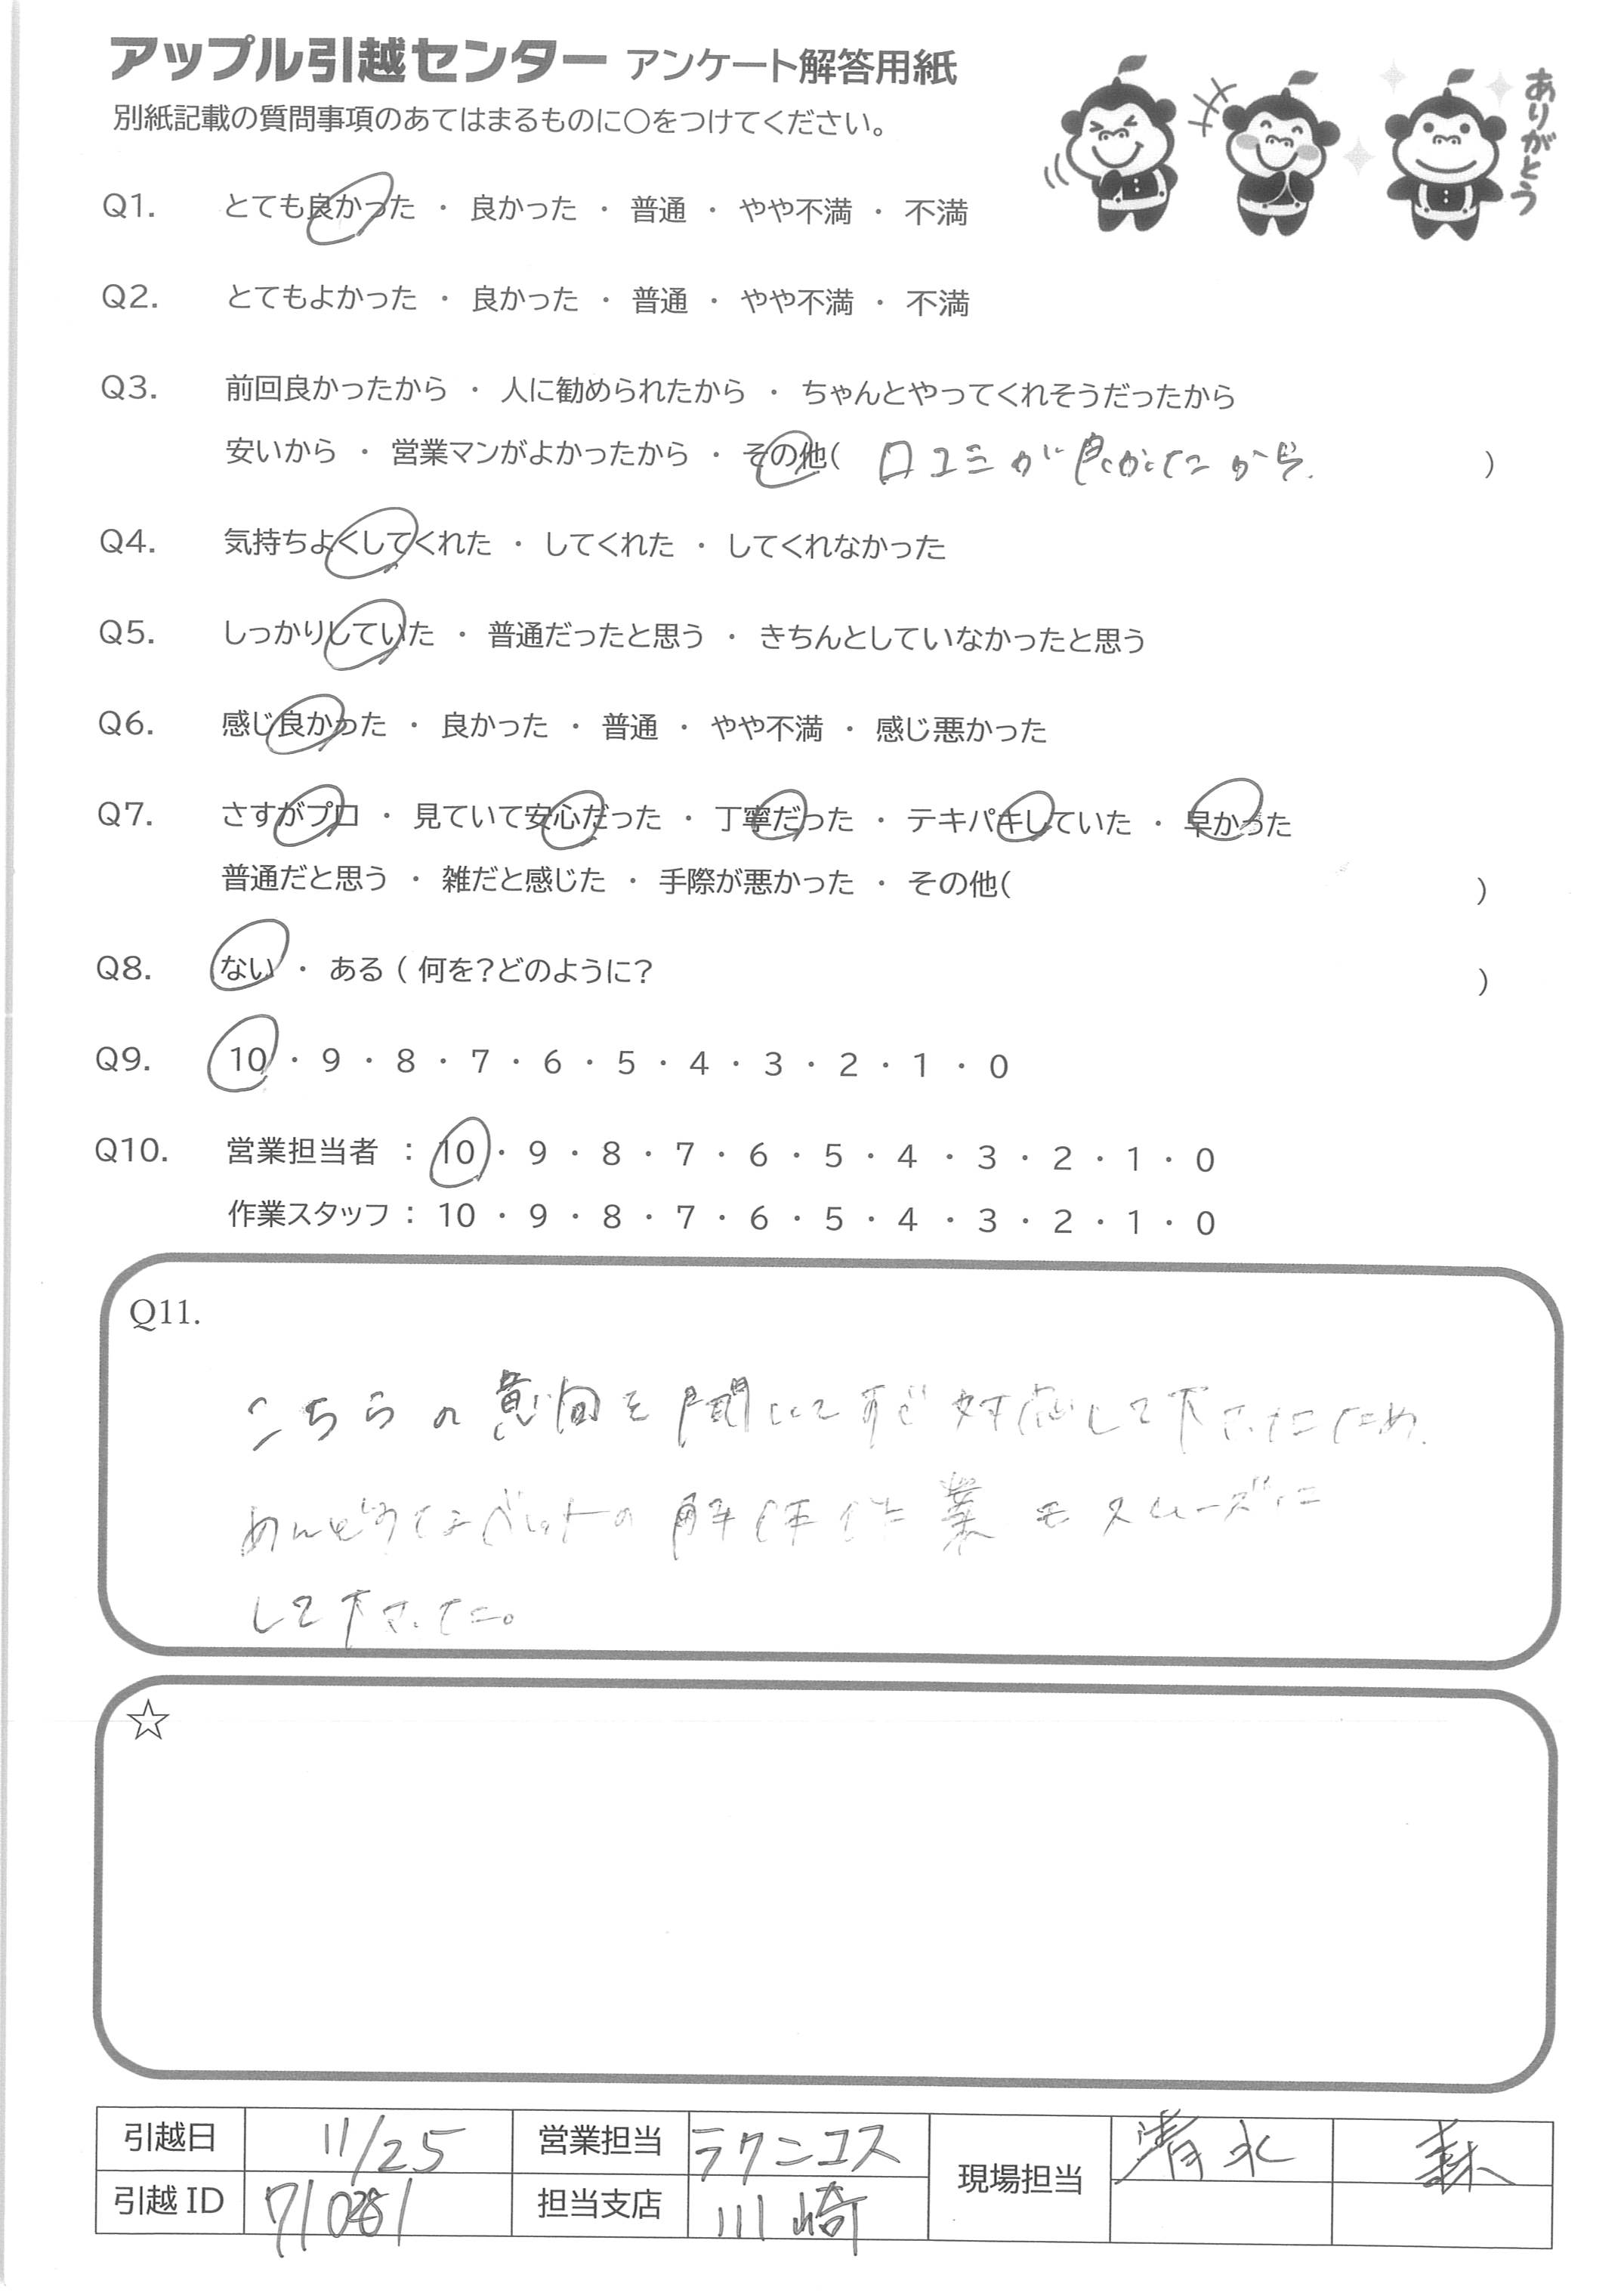 アップル引越センター アンケート解答用紙
別紙記載の質問事項のあてはまるものに○をつけてください。
ありがとう
Q1. とても良かった ・ 良かった ・ 普通 ・ やや不満 ・ 不満
Q2. とてもよかった ・ 良かった ・ 普通 ・ やや不満 ・ 不満
Q3. 前回良かったから ・ 人に勧められたから ・ ちゃんとやってくれそうだったから
安いから ・ 営業マンがよかったから ・ その他( 口コミが良かったから. )
Q4. 気持ちよくしてくれた ・ してくれた ・ してくれなかった
Q5. しっかりしていた ・ 普通だったと思う ・ きちんとしていなかったと思う
Q6. 感じ良かった ・ 良かった ・ 普通 ・ やや不満 ・ 感じ悪かった
Q7. さすがプロ ・ 見ていて安心だった ・ 丁寧だった ・ テキパキしていた ・ 早かった
普通だと思う ・ 雑だと感じた ・ 手際が悪かった ・ その他( )
Q8. ない ・ ある ( 何を?どのように? )
Q9. 10 ・ 9 ・ 8 ・ 7 ・ 6 ・ 5 ・ 4 ・ 3 ・ 2 ・ 1 ・ 0
Q10. 営業担当者 : 10 ・ 9 ・ 8 ・ 7 ・ 6 ・ 5 ・ 4 ・ 3 ・ 2 ・ 1 ・ 0
作業スタッフ : 10 ・ 9 ・ 8 ・ 7 ・ 6 ・ 5 ・ 4 ・ 3 ・ 2 ・ 1 ・ 0
Q11.
こちらの意向を聞いて対応して下さったため.
めんどうなベットの解体作業もスムーズに
して下さった。
☆
引越日 11/25 営業担当 ラクンコス 現場担当 清水 森
引越 ID 担当支店 川崎